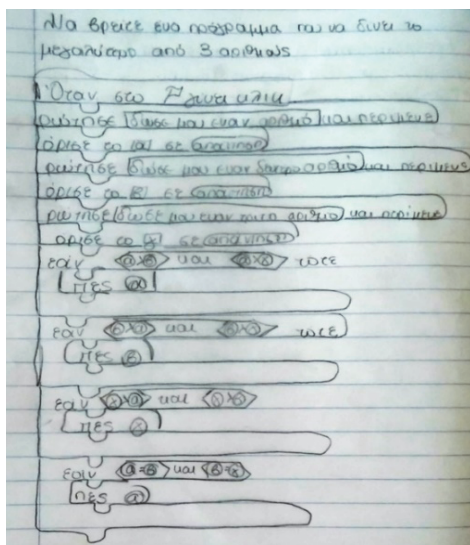 Να βρείτε ενα πρόγραμμα που να δινει το
μεγαλύτερο από 3 αριθμούς
Όταν στο γίνει κλικ
ρώτησε δώσε μου εναν αριθμό και περίμενε
όρισε το α σε απάντηση
ρώτησε δώσε μου εναν δευτερο αριθμό και περίμενε
όρισε το β σε απάντηση
ρώτησε δώσε μου εναν τριτο αριθμο και περίμενε
όρισε το γ σε απάντηση
εαν α>β και α>γ τοτε
πες α
εαν β>α και β>γ τοτε
πες β
εαν γ>α και γ>β
πες γ
εαν α=β και β=γ
πες α